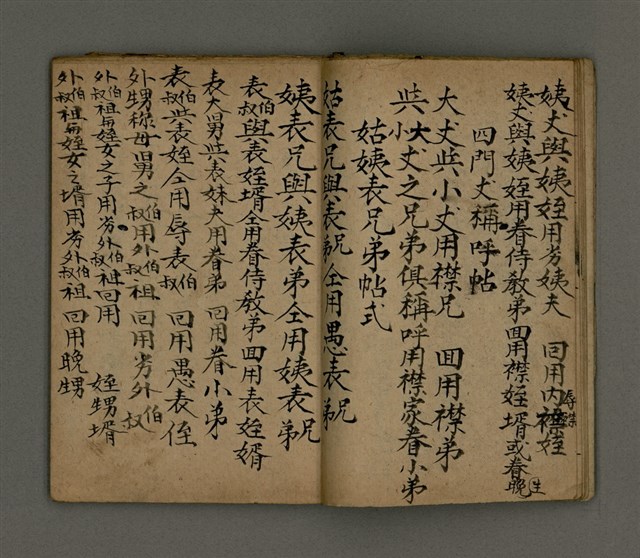 姨丈與姨姪用劣姨夫 回用內襟姪 辱襟
姨丈與姨姪用眷侍教弟 回用襟姪壻或眷晚生
四門丈稱呼帖
大丈共小丈用襟兄 回用襟弟
共大小丈之兄弟俱稱呼用襟家眷小弟
姑姨表兄弟帖式
姑表兄與表兄弟仝用愚表兄弟
姨表兄與姨表弟仝用姨表兄弟
表伯叔與表姪壻仝用眷侍教弟 回用表姪婿
表大舅共表妹夫用眷弟 回用眷小弟
表伯叔共表姪仝用辱表伯叔 回用愚表侄
外甥稱母舅之伯叔用外伯叔祖 回用劣外伯叔
外伯叔祖與姪女之子用劣外伯叔祖 回用 姪甥壻
外伯叔祖與姪女之壻用劣外伯叔祖 回用晚甥